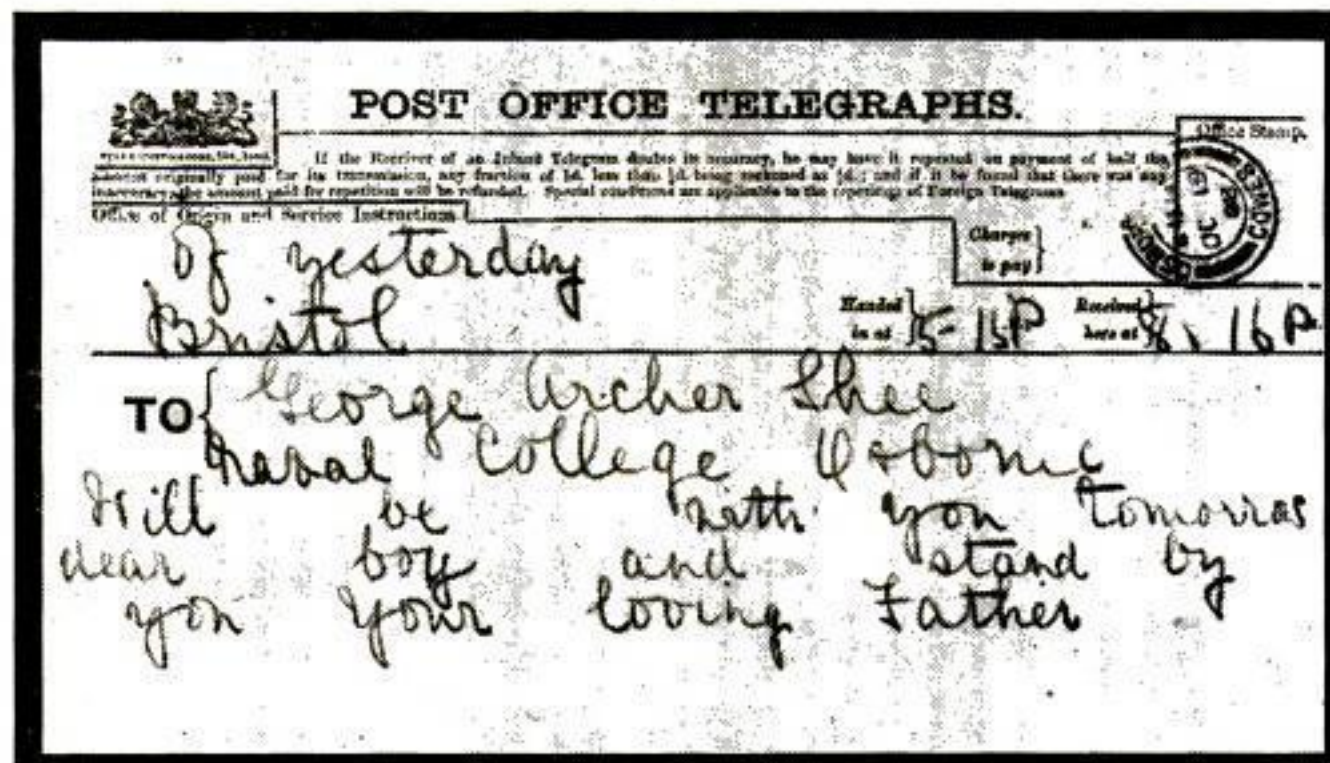 POST OFFICE TELEGRAPHS.
Office Stamp.
If the Receiver of an Inland Telegram doubts its accuracy, he may have it repeated on payment of half the
amount originally paid for its transmission, any fraction of 1d. less than ½d. being reckoned as ½d.; and if it be found that there was any
inaccuracy, the amount paid for repetition will be refunded. Special conditions are applicable to the repeating of Foreign Telegrams
Office of Origin and Service Instructions
Of yesterday
Charges to pay
Bristol
Handed in at 5-15P Received here at 16 P
TO George Archer Shee
Naval College Osborne
Will be with you tomorrow
dear boy and stand by
you Your loving Father
COWES